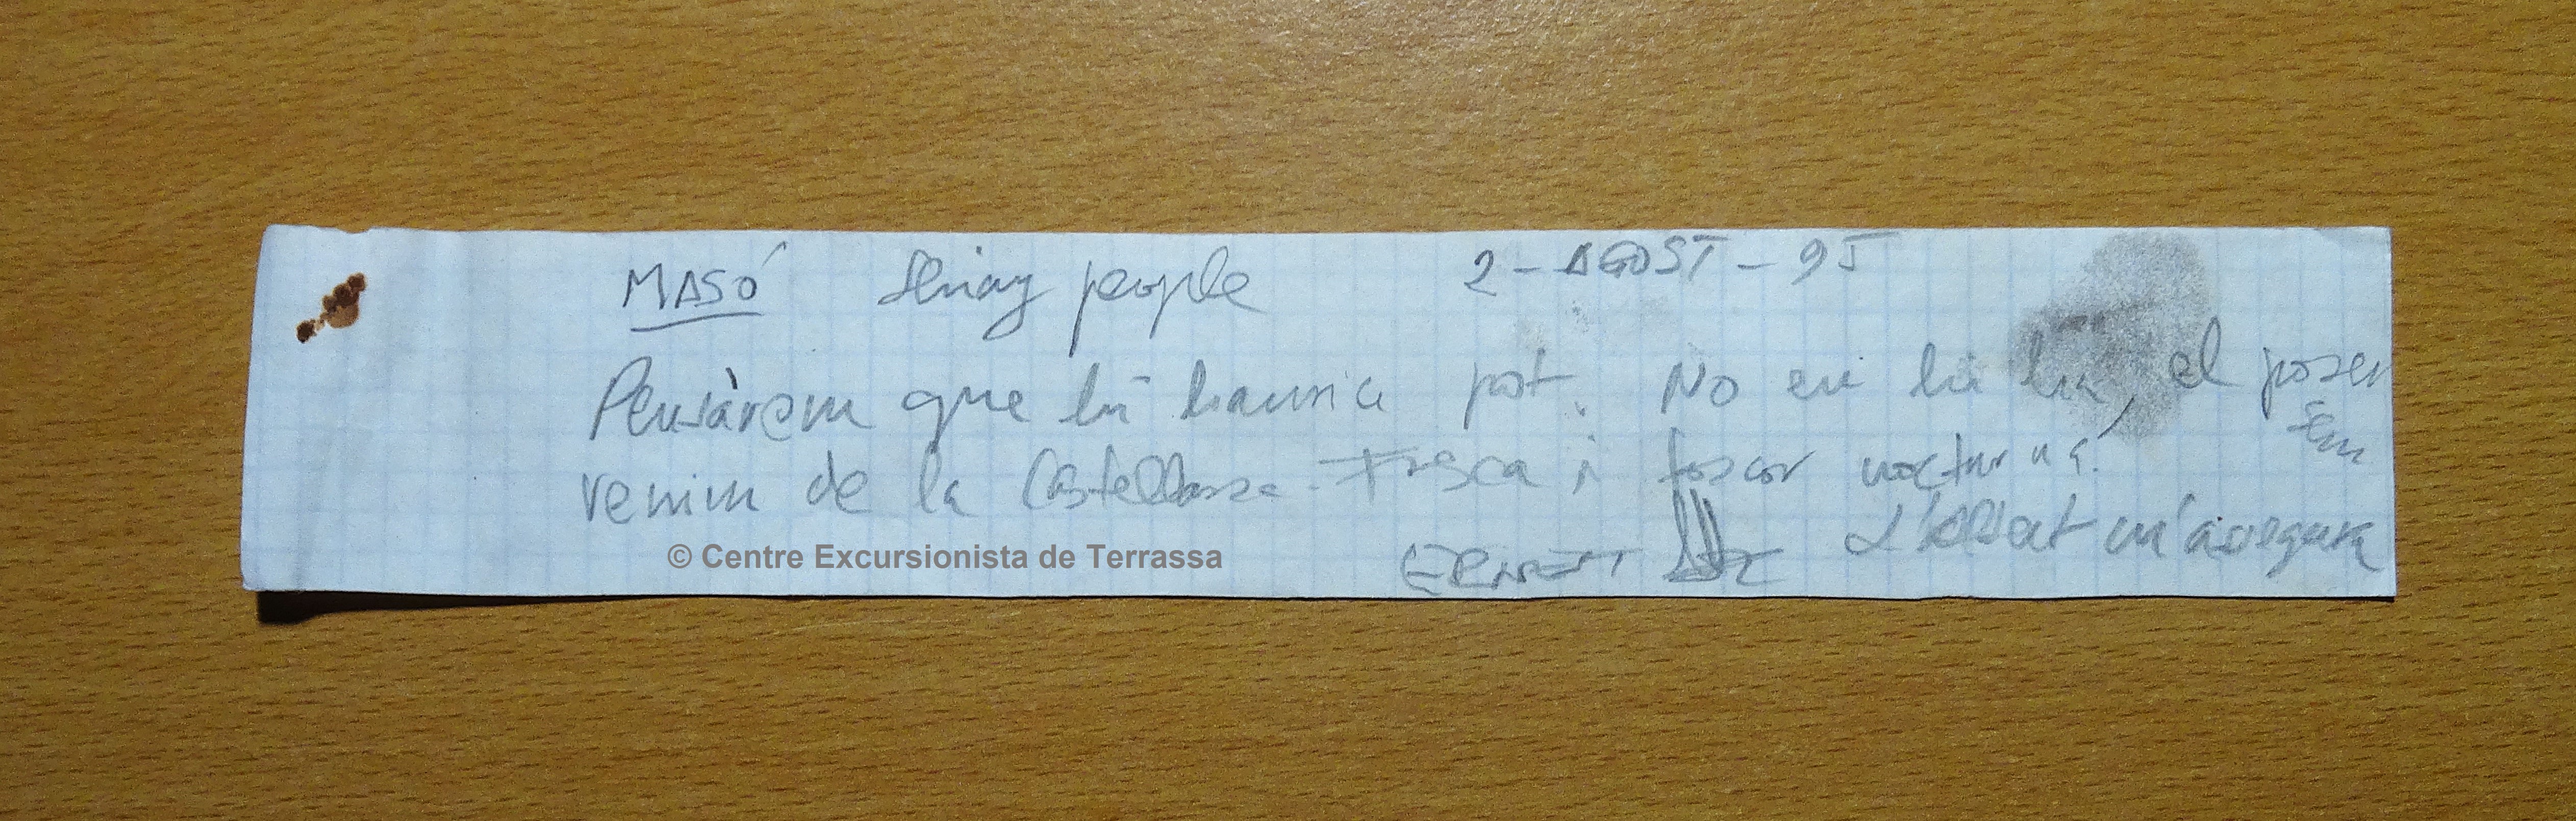 MASÓ people 2-AGOST-95
Pensàrem que hi hauria pot. No en hi ha, el posem
venim de la Castellassa. Fresca i foscor nocturna.
© Centre Excursionista de Terrassa
ERNEST L'Albert m'assegura